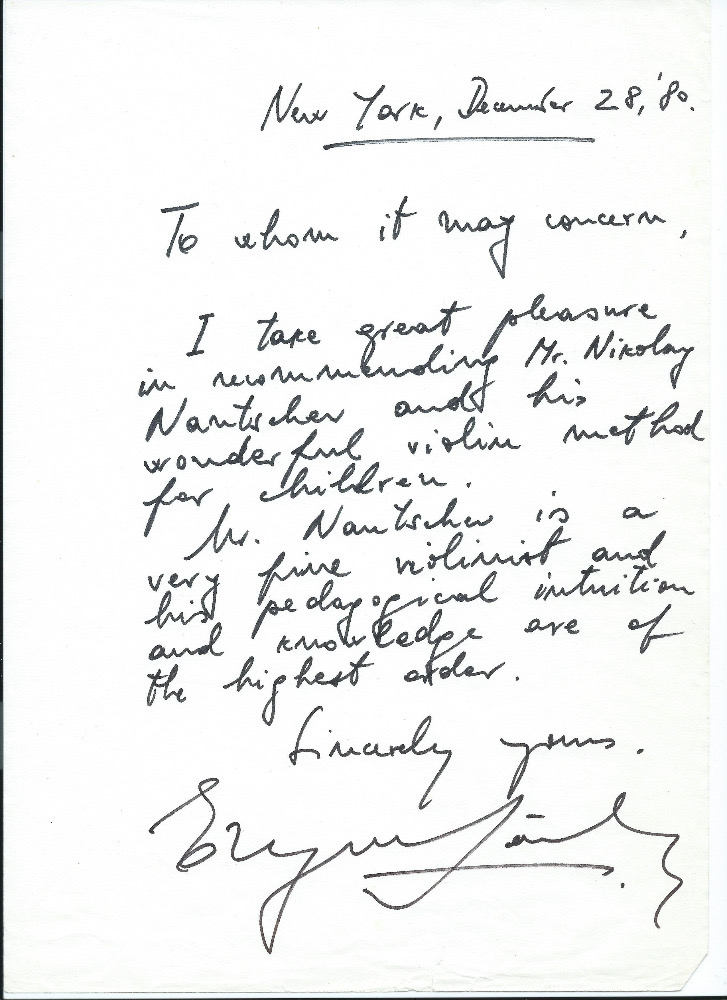 New York, December 28, '80.
To whom it may concern,
I take great pleasure
in recommending Mr. Nikolay
Nantschev and his
wonderful violin method
for children.
Mr. Nantschev is a
very fine violinist and
his pedagogical intuition
and knowledge are of
the highest order.
Sincerely yours.